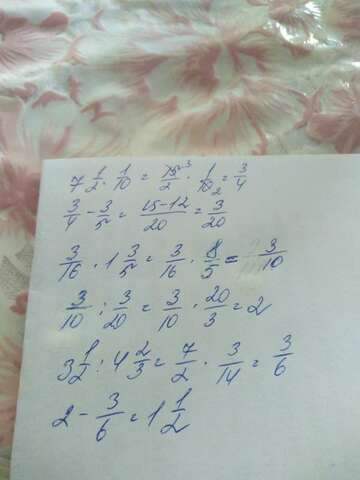 7 1/2 · 1/10 = 15/2 3 · 1/10 2 = 3/4
3/4 - 3/5 = 15-12/20 = 3/20
3/16 · 1 3/5 = 3/16 · 8/5 = 3/10
3/10 : 3/20 = 3/10 · 20/3 = 2
3 1/2 : 4 2/3 = 7/2 · 3/14 = 3/6
2 - 3/6 = 1 1/2